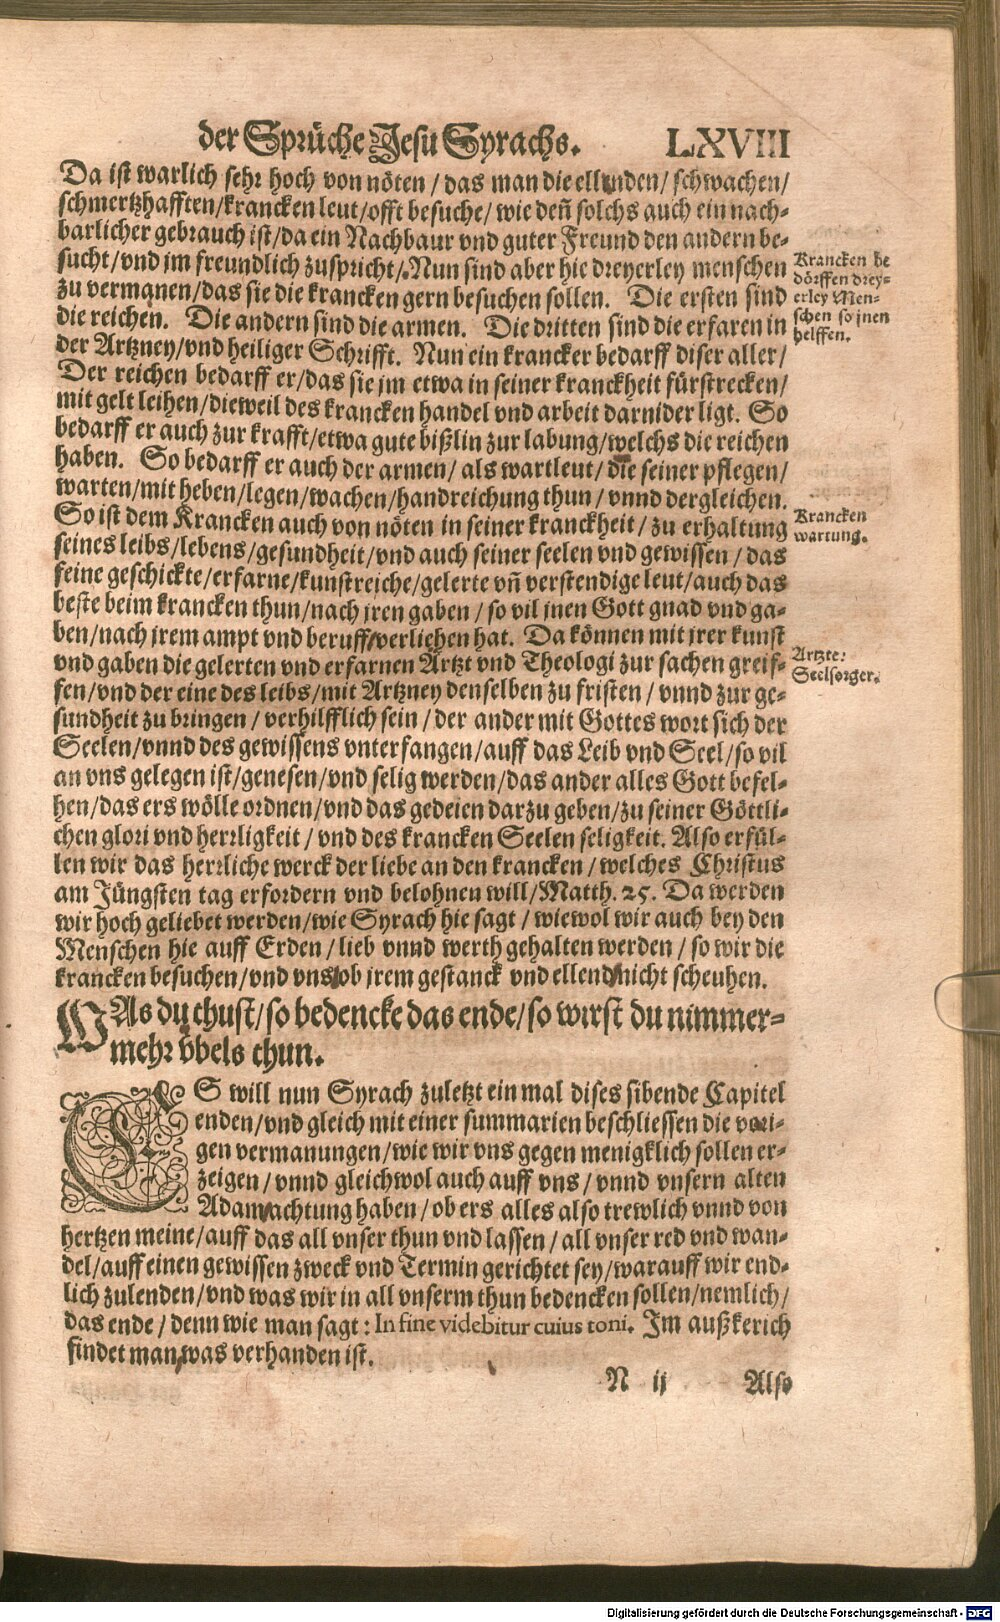 der Sprüche Jesu Syrachs. LXVIII
Da ist warlich sehr hoch von nöten / das man die ellenden / schwachen /
schmertzhafften / krancken leut / offt besuche / wie deñ solchs auch ein nach-
barlicher gebrauch ist / da ein Nachbaur vnd guter Freund den andern be-
sucht / vnd im freundlich zuspricht / Nun sind aber hie dreyerley menschen
zu vermanen / das sie die krancken gern besuchen sollen. Die ersten sind
die reichen. Die andern sind die armen. Die dritten sind die erfaren in
der Artzney / vnd heiliger Schrifft. Nun ein krancker bedarff diser aller /
Der reichen bedarff er / das sie jm etwa in seiner kranckheit fürstrecken /
mit gelt leihen / dieweil des krancken handel vnd arbeit darnider ligt. So
bedarff er auch zur krafft / etwa gute bißlin zur labung / welchs die reichen
haben. So bedarff er auch der armen / als wartleut / die seiner pflegen /
warten / mit heben / legen / wachen / handreichung thun / vnnd dergleichen.
So ist dem Krancken auch von nöten in seiner kranckheit / zu erhaltung
seines leibs / lebens / gesundheit / vnd auch seiner seelen vnd gewissen / das
feine geschickte / erfarne / kunstreiche / gelerte vñ verstendige leut / auch das
beste beim krancken thun / nach jren gaben / so vil jnen Gott gnad vnd ga-
ben / nach jrem ampt vnd beruff / verliehen hat. Da können mit jrer kunst
vnd gaben die gelerten vnd erfarnen Artzt vnd Theologi zur sachen greif-
fen / vnd der eine des leibs / mit Artzney denselben zu fristen / vnnd zur ge-
sundheit zu bringen / verhilfflich sein / der ander mit Gottes wort sich der
Seelen / vnnd des gewissens vnterfangen / auff das Leib vnd Seel / so vil
an vns gelegen ist / genesen / vnd selig werden / das ander alles Gott befel-
hen / das ers wölle ordnen / vnd das gedeien darzu geben / zu seiner Göttli-
chen glori vnd herrligkeit / vnd des krancken Seelen seligkeit. Also erfül-
len wir das herrliche werck der liebe an den krancken / welches Christus
am Jüngsten tag erfordern vnd belohnen will / Matth. 25. Da werden
wir hoch geliebet werden / wie Syrach hie sagt / wiewol wir auch bey den
Menschen hie auff Erden / lieb vnnd werth gehalten werden / so wir die
krancken besuchen / vnd vns ob jrem gestanck vnd ellend nicht scheuhen.
Krancken be
dörffen drey-
erley Men-
schen so jnen
helffen.
Krancken
wartung.
Artzte.
Seelsorger.
WAs du thust / so bedencke das ende / so wirst du nimmer-
mehr übels thun.
ES will nun Syrach zuletzt ein mal dises sibende Capitel
enden / vnd gleich mit einer summarien beschliessen die vori-
gen vermanungen / wie wir vns gegen menigklich sollen er-
zeigen / vnnd gleichwol auch auff vns / vnnd vnsern alten
Adam achtung haben / ob ers alles also trewlich vnnd von
hertzen meine / auff das all vnser thun vnd lassen / all vnser red vnd wan-
del / auff einen gewissen zweck vnd Termin gerichtet sey / warauff wir end-
lich zulenden / vnd was wir in all vnserm thun bedencken sollen / nemlich /
das ende / denn wie man sagt : In fine videbitur cuius toni. Im außkerich
findet man was verhanden ist.
N ij Also
Digitalisierung gefördert durch die Deutsche Forschungsgemeinschaft - DFG